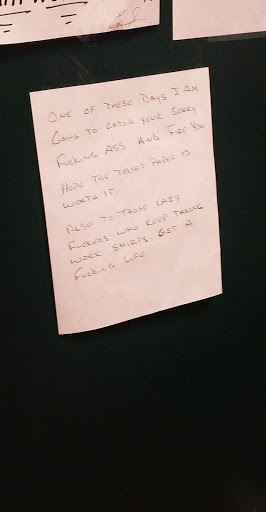 ONE OF THESE DAYS I AM
GOING TO CATCH YOUR SORRY
FUCKING ASS AND FIRE YOU
HOPE THE TOILET PAPER IS
WORTH IT.
ALSO TO THOSE LAZY
FUCKERS WHO KEEP TAKING
WORK SHIRTS. GET A
FUCKING LIFE